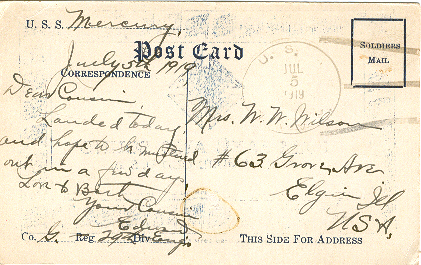 U. S. S. Mercury.
Post Card
July 5th 1919
CORRESPONDENCE
SOLDIERS
MAIL
U. S.
JUL
5
1919
Dear Cousin
Landed today
and hope to be
out in a few days
Love & Best
Your Cousin
Edwin
Co. G. Reg Div. Engs
Mrs. W. W. Wilson
#63 Grove Ave
Elgin Ill
USA,
THIS SIDE FOR ADDRESS